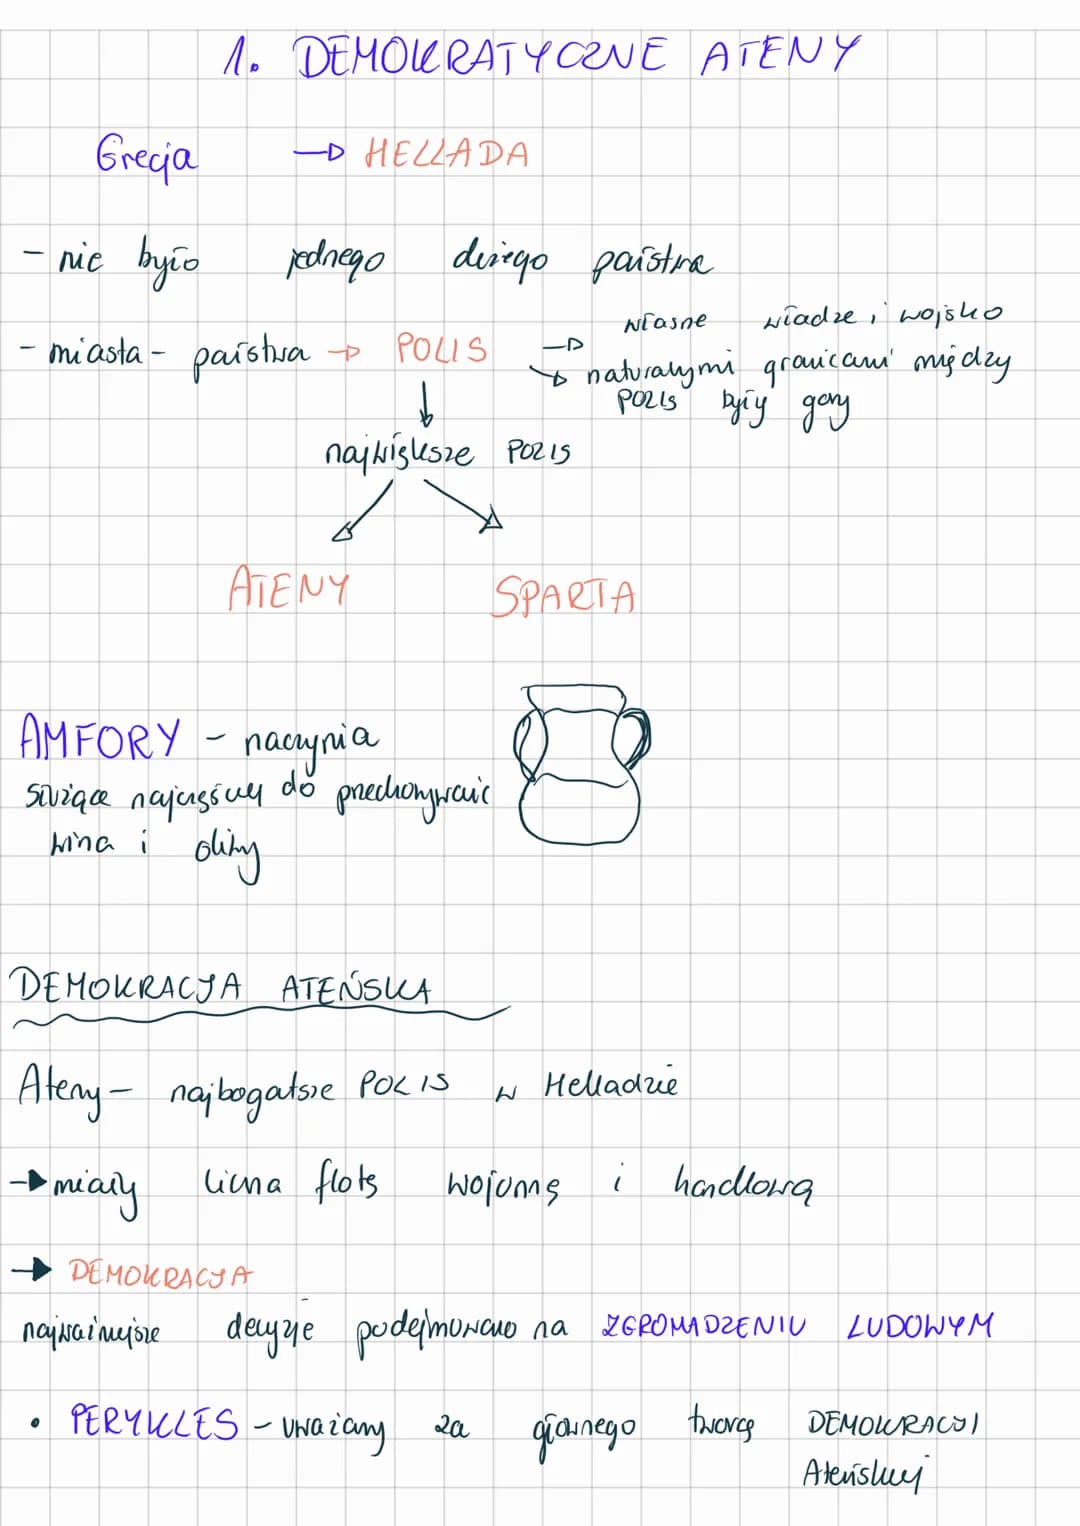 1. DEMOKRATYCZNE ATENY
Grecja → HELLADA
- nie było jednego dużego państwa
- miasta - państwa → POLIS → własne władze i wojsko
→ naturalnymi granicami między
POLIS były góry
↓
największe POLIS
ATENY SPARTA
AMFORY - naczynia
służące najczęściej do przechowywać
wina i oliwy
DEMOKRACJA ATEŃSKA
Ateny - najbogatsze POLIS w Helladzie
→ miały liczna flotę wojenną i handlową
→ DEMOKRACJA
najważniejsze decyzje podejmowano na ZGROMADZENIU LUDOWYM
• PERYKLES - uważany za głównego twórcę DEMOKRACJI
Ateńskiej